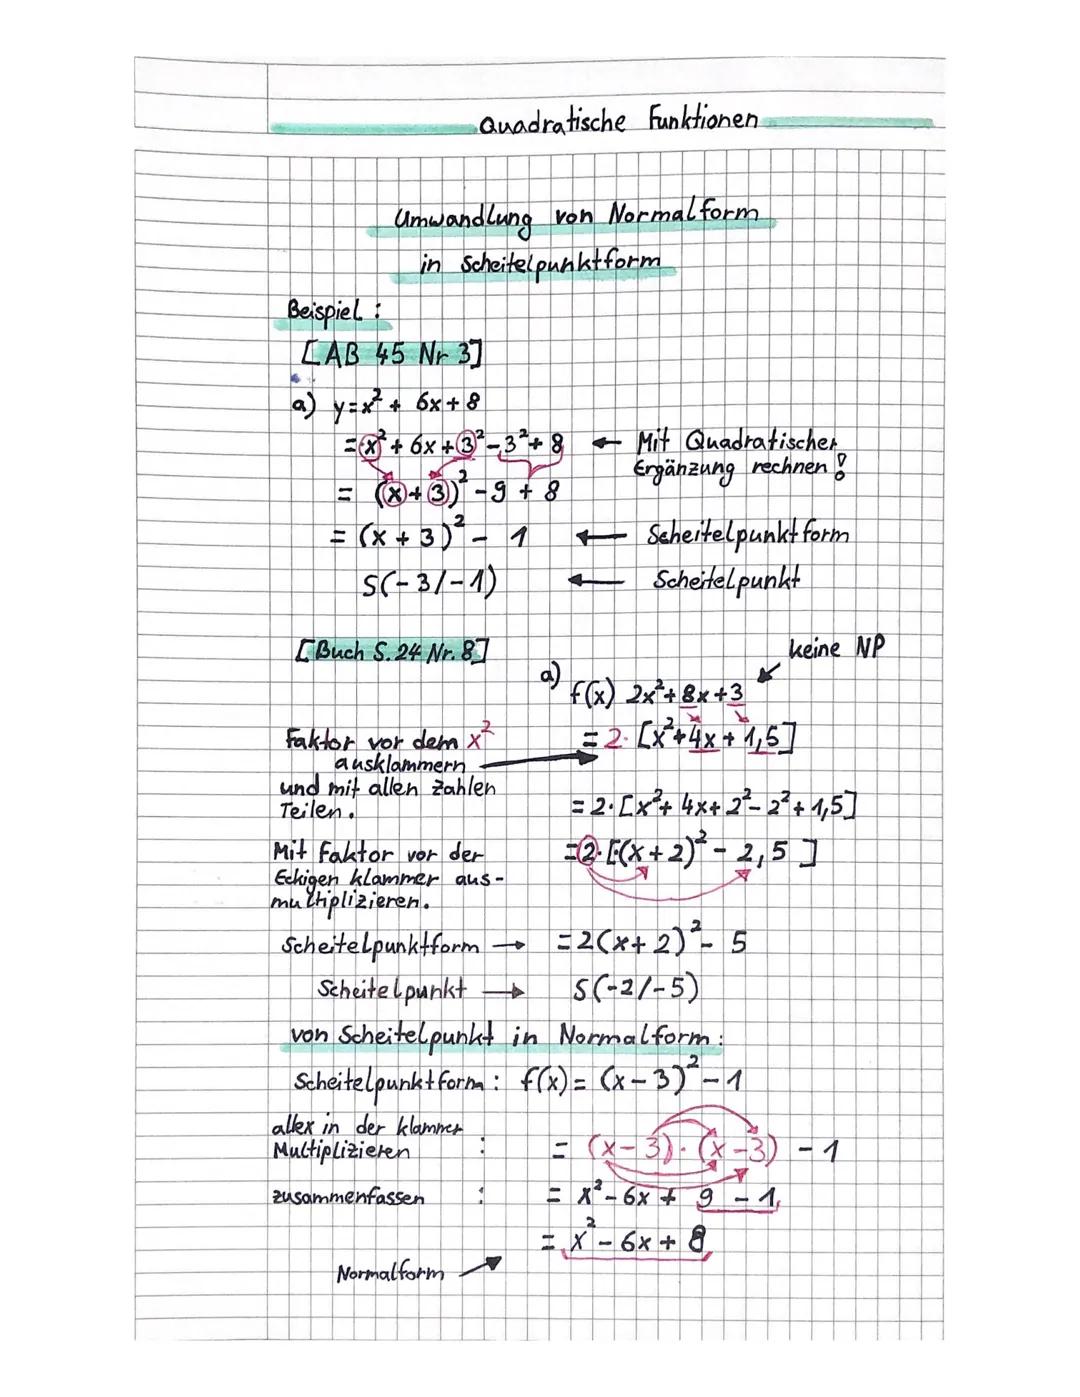 Quadratische Funktionen
Umwandlung von Normalform
in Scheitelpunktform
Beispiel :
[AB 45 Nr 3]
a) y=x² + 6x + 8
= x² + 6x + 3² - 3² + 8 ← Mit Quadratischer
Ergänzung rechnen!
= (x + 3)² - 9 + 8
= (x + 3)² - 1 ← Scheitelpunktform
S(-3/-1) ← Scheitelpunkt
[Buch S. 24 Nr. 8]
keine NP
a) f(x) 2x² + 8x + 3
Faktor vor dem x²
ausklammern
und mit allen Zahlen
Teilen.
= 2· [x² + 4x + 1,5]
= 2· [x² + 4x + 2² - 2² + 1,5]
Mit Faktor vor der
Eckigen Klammer aus-
multiplizieren.
= 2· [(x + 2)² - 2,5 ]
Scheitelpunktform → = 2(x + 2)² - 5
Scheitelpunkt → S(-2/-5)
von Scheitelpunkt in Normalform :
Scheitelpunktform : f(x) = (x - 3)² - 1
alles in der Klammer
Multiplizieren : = (x - 3) · (x - 3) - 1
zusammenfassen : = x² - 6x + 9 - 1
= x² - 6x + 8
Normalform